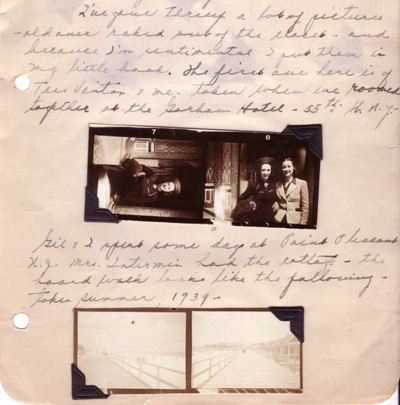 I've gone through a lot of pictures
- old ones raked out of the closet - and
because I'm sentimental I put them in
my little book. The first one here is of
Tess & me. taken when we roomed
together at the Gorham Hotel - 55th St. N.Y.
7
8
Gil & I spent some days at Point Pleasant
N.J. Mrs. had the cottage - the
board walk looks like the following -
taken summer, 1939 -